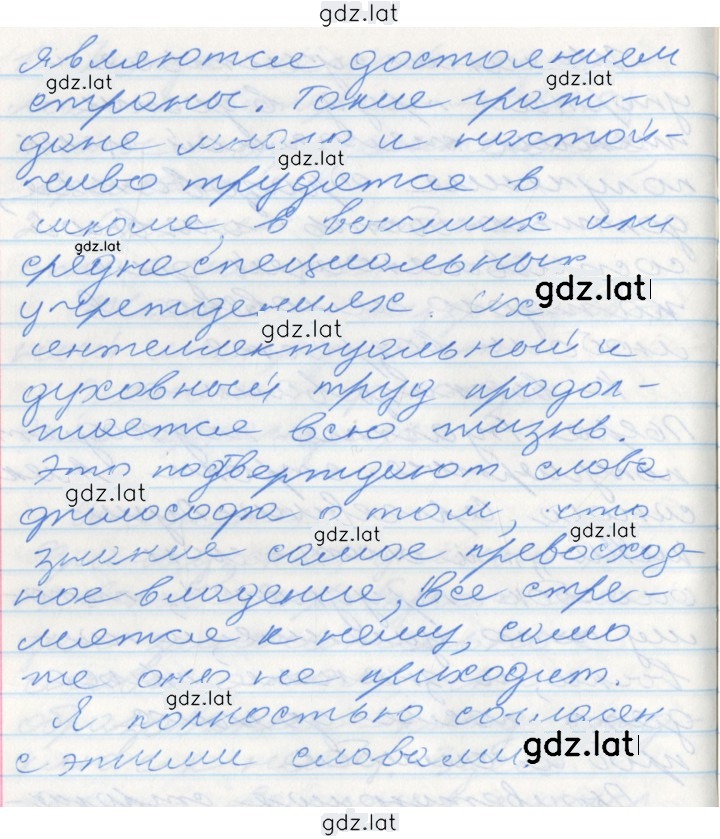 gdz.lat
являются достоянием
gdz.lat gdz.lat
страны. Такие граж-
дане много и настой-
gdz.lat
чиво трудятся в
школе, в высших или
gdz.lat
среднеспециальных
gdz.lat
учреждениях. Их
gdz.lat
интеллектуальный и
духовный труд продол-
жается всю жизнь.
Это подтверждают слова
gdz.lat
философа о том, что
gdz.lat gdz.lat
знание самое превосход-
ное владение, Все стре-
мятся к нему, само
же оно не приходит.
gdz.lat
Я полностью согласен
gdz.lat
с этими словами.
gdz.lat